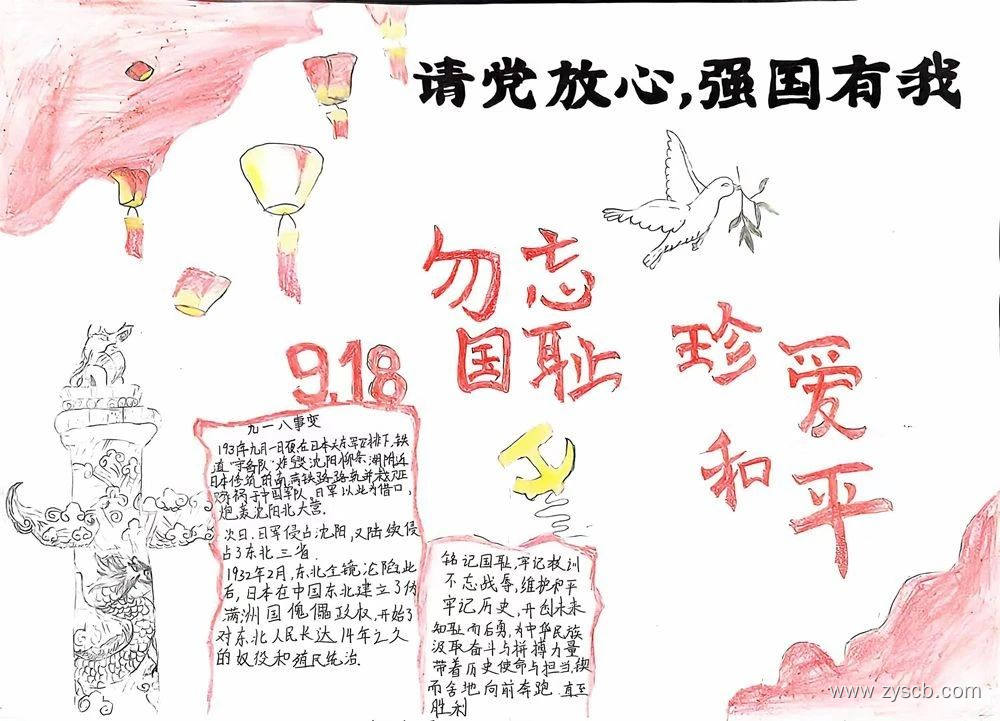 请党放心,强国有我
勿忘
国耻
珍爱
和平
9.18
九一八事变
193年九月一日夜在日本关东军安排下,铁
道"守备队"炸毁沈阳柳条湖附近
日本修筑的南满铁路路轨并栽赃
嫁祸于中国军队。日军以此为借口,
炮轰沈阳北大营.
次日,日军侵占沈阳,又陆续侵
占了东北三省.
1932年2月,东北全境沦陷此
后,日本在中国东北建立了伪
满洲国傀儡政权,开始了
对东北人民长达14年之久
的奴役和殖民统治.
铭记国耻,牢记教训
不忘战辱,维护和平
牢记历史,开创未来
知耻而后勇,为中华民族
汲取奋斗与拼搏力量
带着历史使命与担当,锲
而舍地向前奔跑 直至
胜利
www.zyscb.com